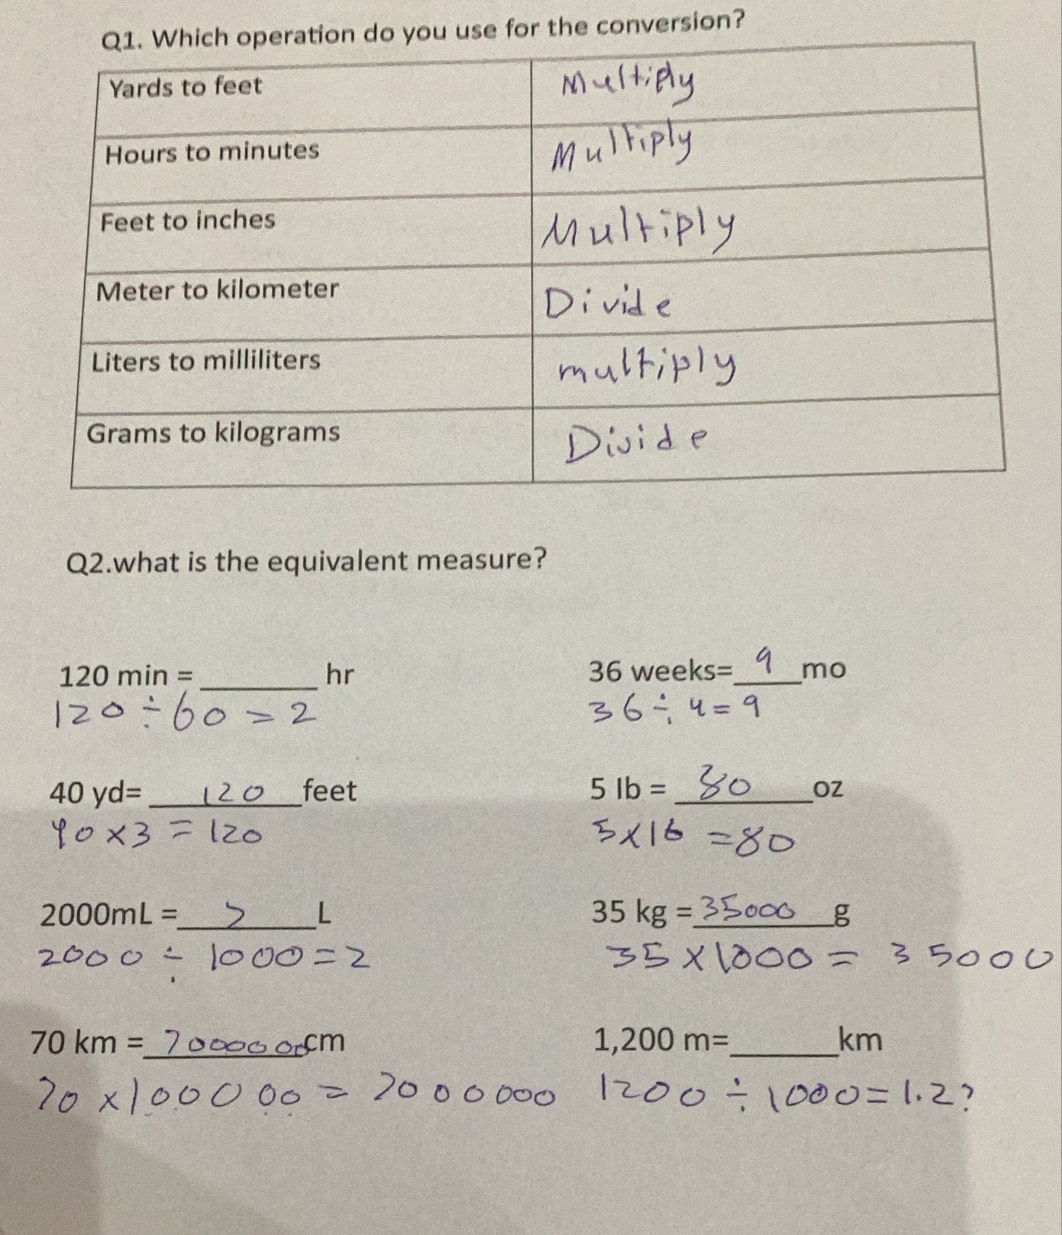 Q1. Which operation do you use for the conversion?
Yards to feet Multiply
Hours to minutes Multiply
Feet to inches Multiply
Meter to kilometer Divide
Liters to milliliters multiply
Grams to kilograms Divide
Q2.what is the equivalent measure?
120 min = ______ hr 36 weeks= 9 mo
120 ÷ 60 = 2 36 ÷ 4 = 9
40 yd= 120 feet 5 lb = 80 oz
40 x 3 = 120 5 x 16 = 80
2000mL = 2 L 35 kg = 35000 g
2000 ÷ 1000 = 2 35 x 1000 = 35000
70 km = 7000000 cm 1,200 m= ______ km
70 x 100000 = 7000000 1200 ÷ 1000 = 1.2?